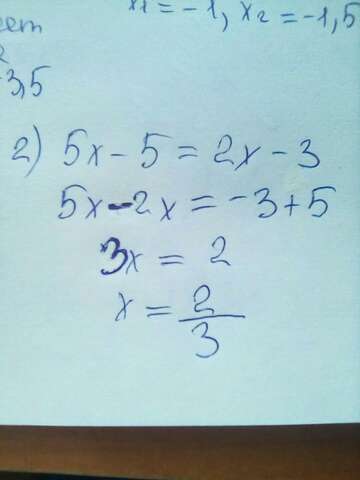 x1 = -1, x2 = -1,5
2
-3,5
2) 5x - 5 = 2x - 3
5x - 2x = -3 + 5
3x = 2
x = 2/3